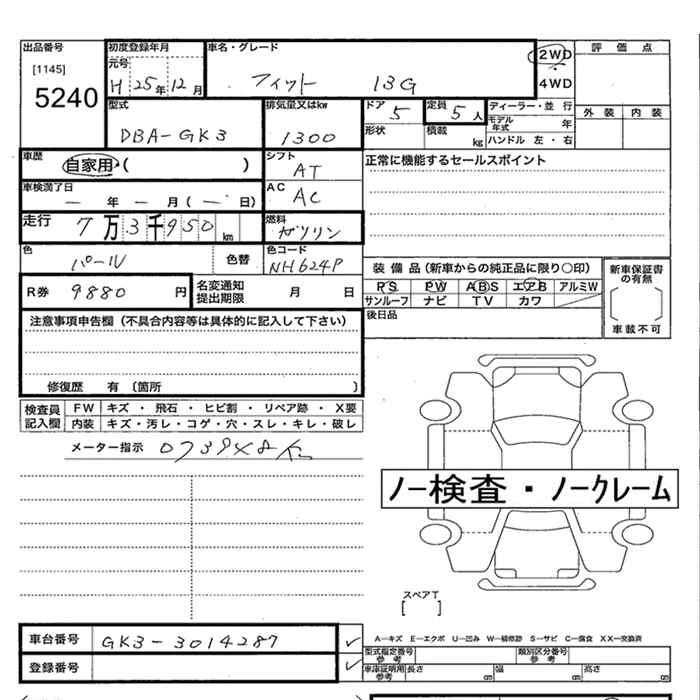 出品番号 初度登録年月 車名・グレード 2WD 評価点
[1145] 元号
5240 H 25年 12月 フィット 13G 4WD
型式 排気量又はkw ドア 定員 ディーラー・並行 外装 内装
DBA-GK3 1300 5 5人 モデル年式 年
形状 積載 kg ハンドル 左・右
車歴 自家用・( ) シフト AT 正常に機能するセールスポイント
車検満了日 ー 年 ー 月 ( ー 日) AC AC
走行 7万3千950km 燃料 ガソリン
色 パール 色替 色コード NH624P
装備品(新車からの純正品に限り〇印) 新車保証書の有無
R券 9880円 名変通知提出期限 月 日 PS PW ABS エアB アルミW
サンルーフ ナビ TV カワ
[ ]
車載不可
注意事項申告欄(不具合内容等は具体的に記入して下さい) 後日品
修復歴 有 〔箇所 〕
検査員記入欄 FW キズ・飛石・ヒビ割・リペア跡・X要
内装 キズ・汚レ・コゲ・穴・スレ・キレ・破レ
メーター指示
ノー検査・ノークレーム
スペアT
[ ]
車台番号 GK3-3014287 ✓
A―キズ E―エクボ U―凹み W―補修跡 S―サビ C―腐食 XX―交換済
登録番号 ✓
型式指定番号参考 類別区分番号参考
車庫証明用参考 長さ cm 幅 cm 高さ cm